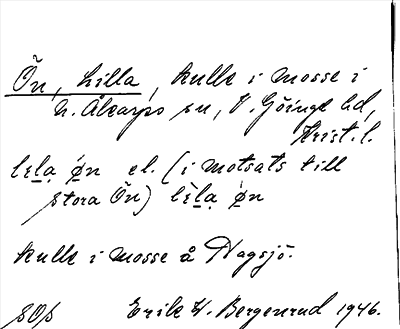 Ön, Lilla, kulle i mosse i
N. Åkarps sn, V. Göinge hd,
Krist. l.
lɛla øn el. (i motsats till
stora Ön) lɛ̀la øn
kulle i mosse å Hagsjö.
SOs Erik H. Bergenrud 1946.